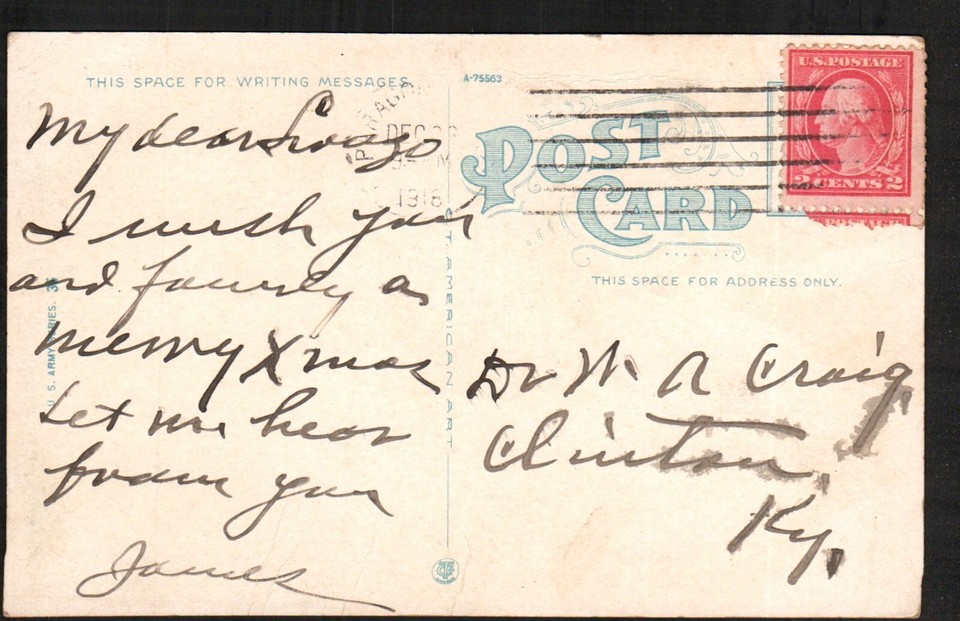 THIS SPACE FOR WRITING MESSAGES.
A-75563
POST
CARD
THIS SPACE FOR ADDRESS ONLY.
U.S.POSTAGE
2 CENTS 2
POSTAGE
PARAGOULD
DEC
M
1918
My dear
I wish you
and family a
merry Xmas
Let me hear
from you
James
Dr W A Craig
Clinton
Ky,
U. S. ARMY SERIES.
C.T. AMERICAN ART